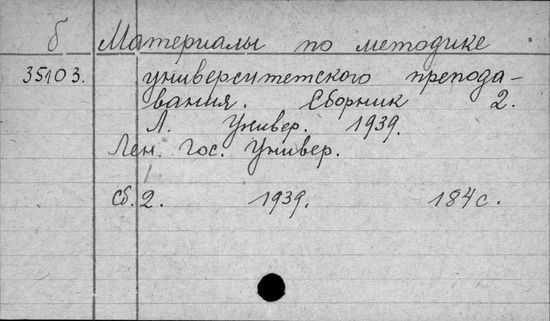 б Материалы по методике
35103. университетского препода-
вания. Сборник 2.
Л. Универ. 1939.
Лен. Гос. Универ.
Сб. 2. 1939. 184 с.